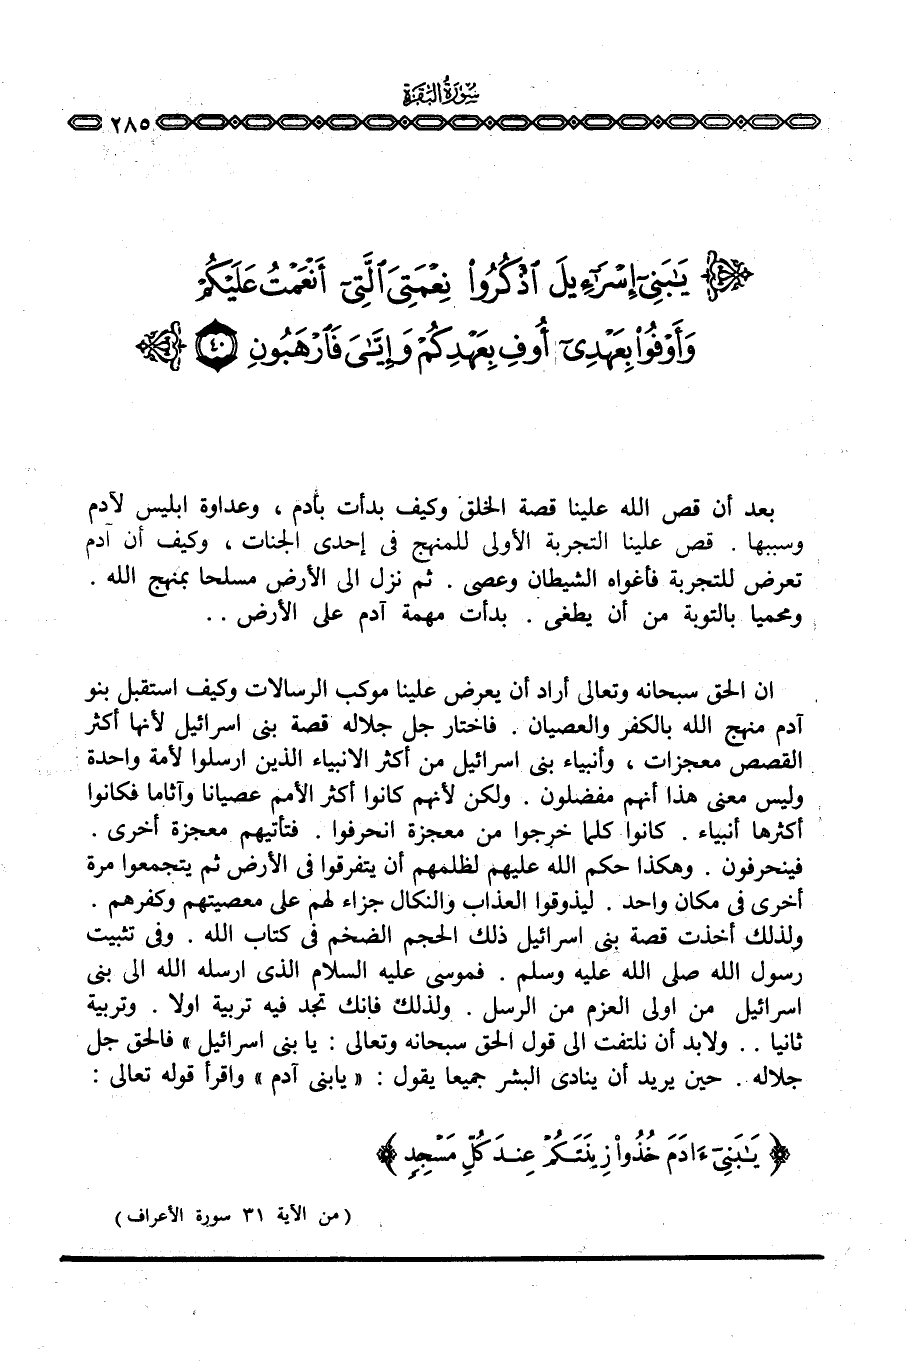 سورة البقرة
٢٨٥
يَٰبَنِىٓ إِسْرَٰٓءِيلَ ٱذْكُرُوا۟ نِعْمَتِىَ ٱلَّتِىٓ أَنْعَمْتُ عَلَيْكُمْ
وَأَوْفُوا۟ بِعَهْدِىٓ أُوفِ بِعَهْدِكُمْ وَإِيَّٰىَ فَٱرْهَبُونِ ٤٠
بعد أن قص الله علينا قصة الخلق وكيف بدأت بأدم ، وعداوة ابليس لآدم
وسببها . قص علينا التجربة الأولى للمنهج فى إحدى الجنات ، وكيف أن آدم
تعرض للتجربة فأغواه الشيطان وعصى . ثم نزل الى الأرض مسلحا بمنهج الله .
ومحميا بالتوبة من أن يطغى . بدأت مهمة آدم على الأرض . .
ان الحق سبحانه وتعالى أراد أن يعرض علينا موكب الرسالات وكيف استقبل بنو
آدم منهج الله بالكفر والعصيان . فاختار جل جلاله قصة بنى اسرائيل لأنها أكثر
القصص معجزات ، وأنبياء بنى اسرائيل من أكثر الانبياء الذين ارسلوا لأمة واحدة
وليس معنى هذا أنهم مفضلون . ولكن لأنهم كانوا أكثر الأمم عصيانا وآثاما فكانوا
أكثرها أنبياء . كانوا كلما خرجوا من معجزة انحرفوا . فتأتيهم معجزة أخرى .
فينحرفون . وهكذا حكم الله عليهم لظلمهم أن يتفرقوا فى الأرض ثم يتجمعوا مرة
أخرى فى مكان واحد . ليذوقوا العذاب والنكال جزاء لهم على معصيتهم وكفرهم .
ولذلك أخذت قصة بنى اسرائيل ذلك الحجم الضخم فى كتاب الله . وفى تثبيت
رسول الله صلى الله عليه وسلم . فموسى عليه السلام الذى ارسله الله الى بنى
اسرائيل من اولى العزم من الرسل . ولذلك فإنك تجد فيه تربية اولا . وتربية
ثانيا . . ولابد أن نلتفت الى قول الحق سبحانه وتعالى : يا بنى اسرائيل » فالحق جل
جلاله . حين يريد أن ينادى البشر جميعا يقول : « يابنى آدم » واقرأ قوله تعالى :
﴿ يَٰبَنِىٓ ءَادَمَ خُذُوا۟ زِينَتَكُمْ عِندَ كُلِّ مَسْجِدٍ ﴾
(من الآية ٣١ سورة الأعراف)